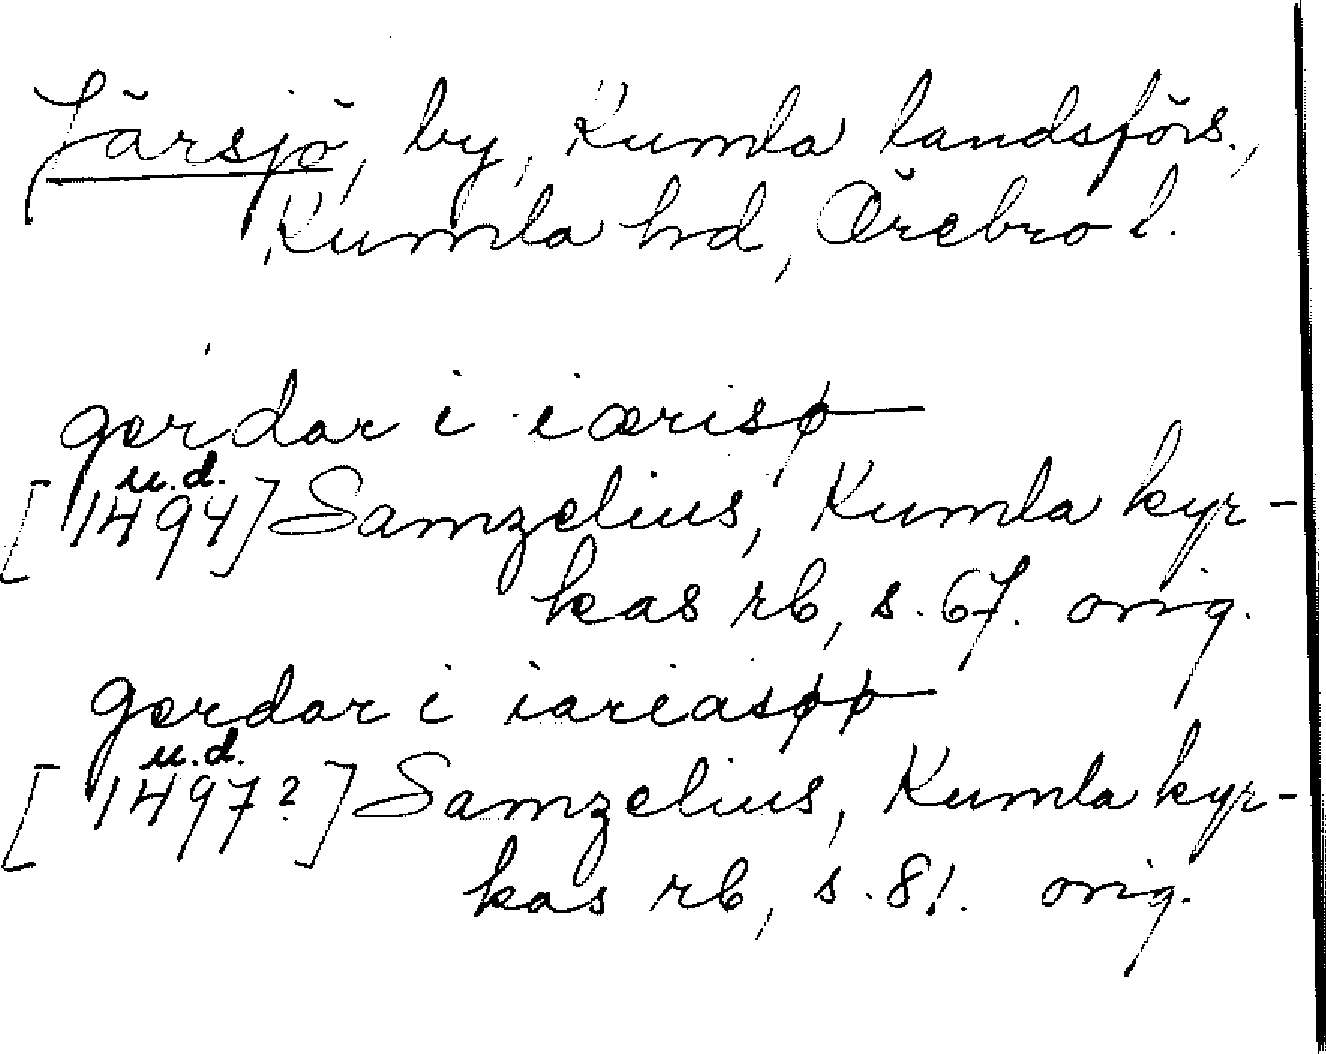 Järsjö, by, Kumla landsförs.,
Kumla hd, Örebro l.
gærdar i iærisø
u.d.
[1494] Samzelius, Kumla kyr-
kas rb, s. 67. orig.
gærdar i iareasøø
u.d.
[1497?] Samzelius, Kumla kyr-
kas rb, s. 81. orig.